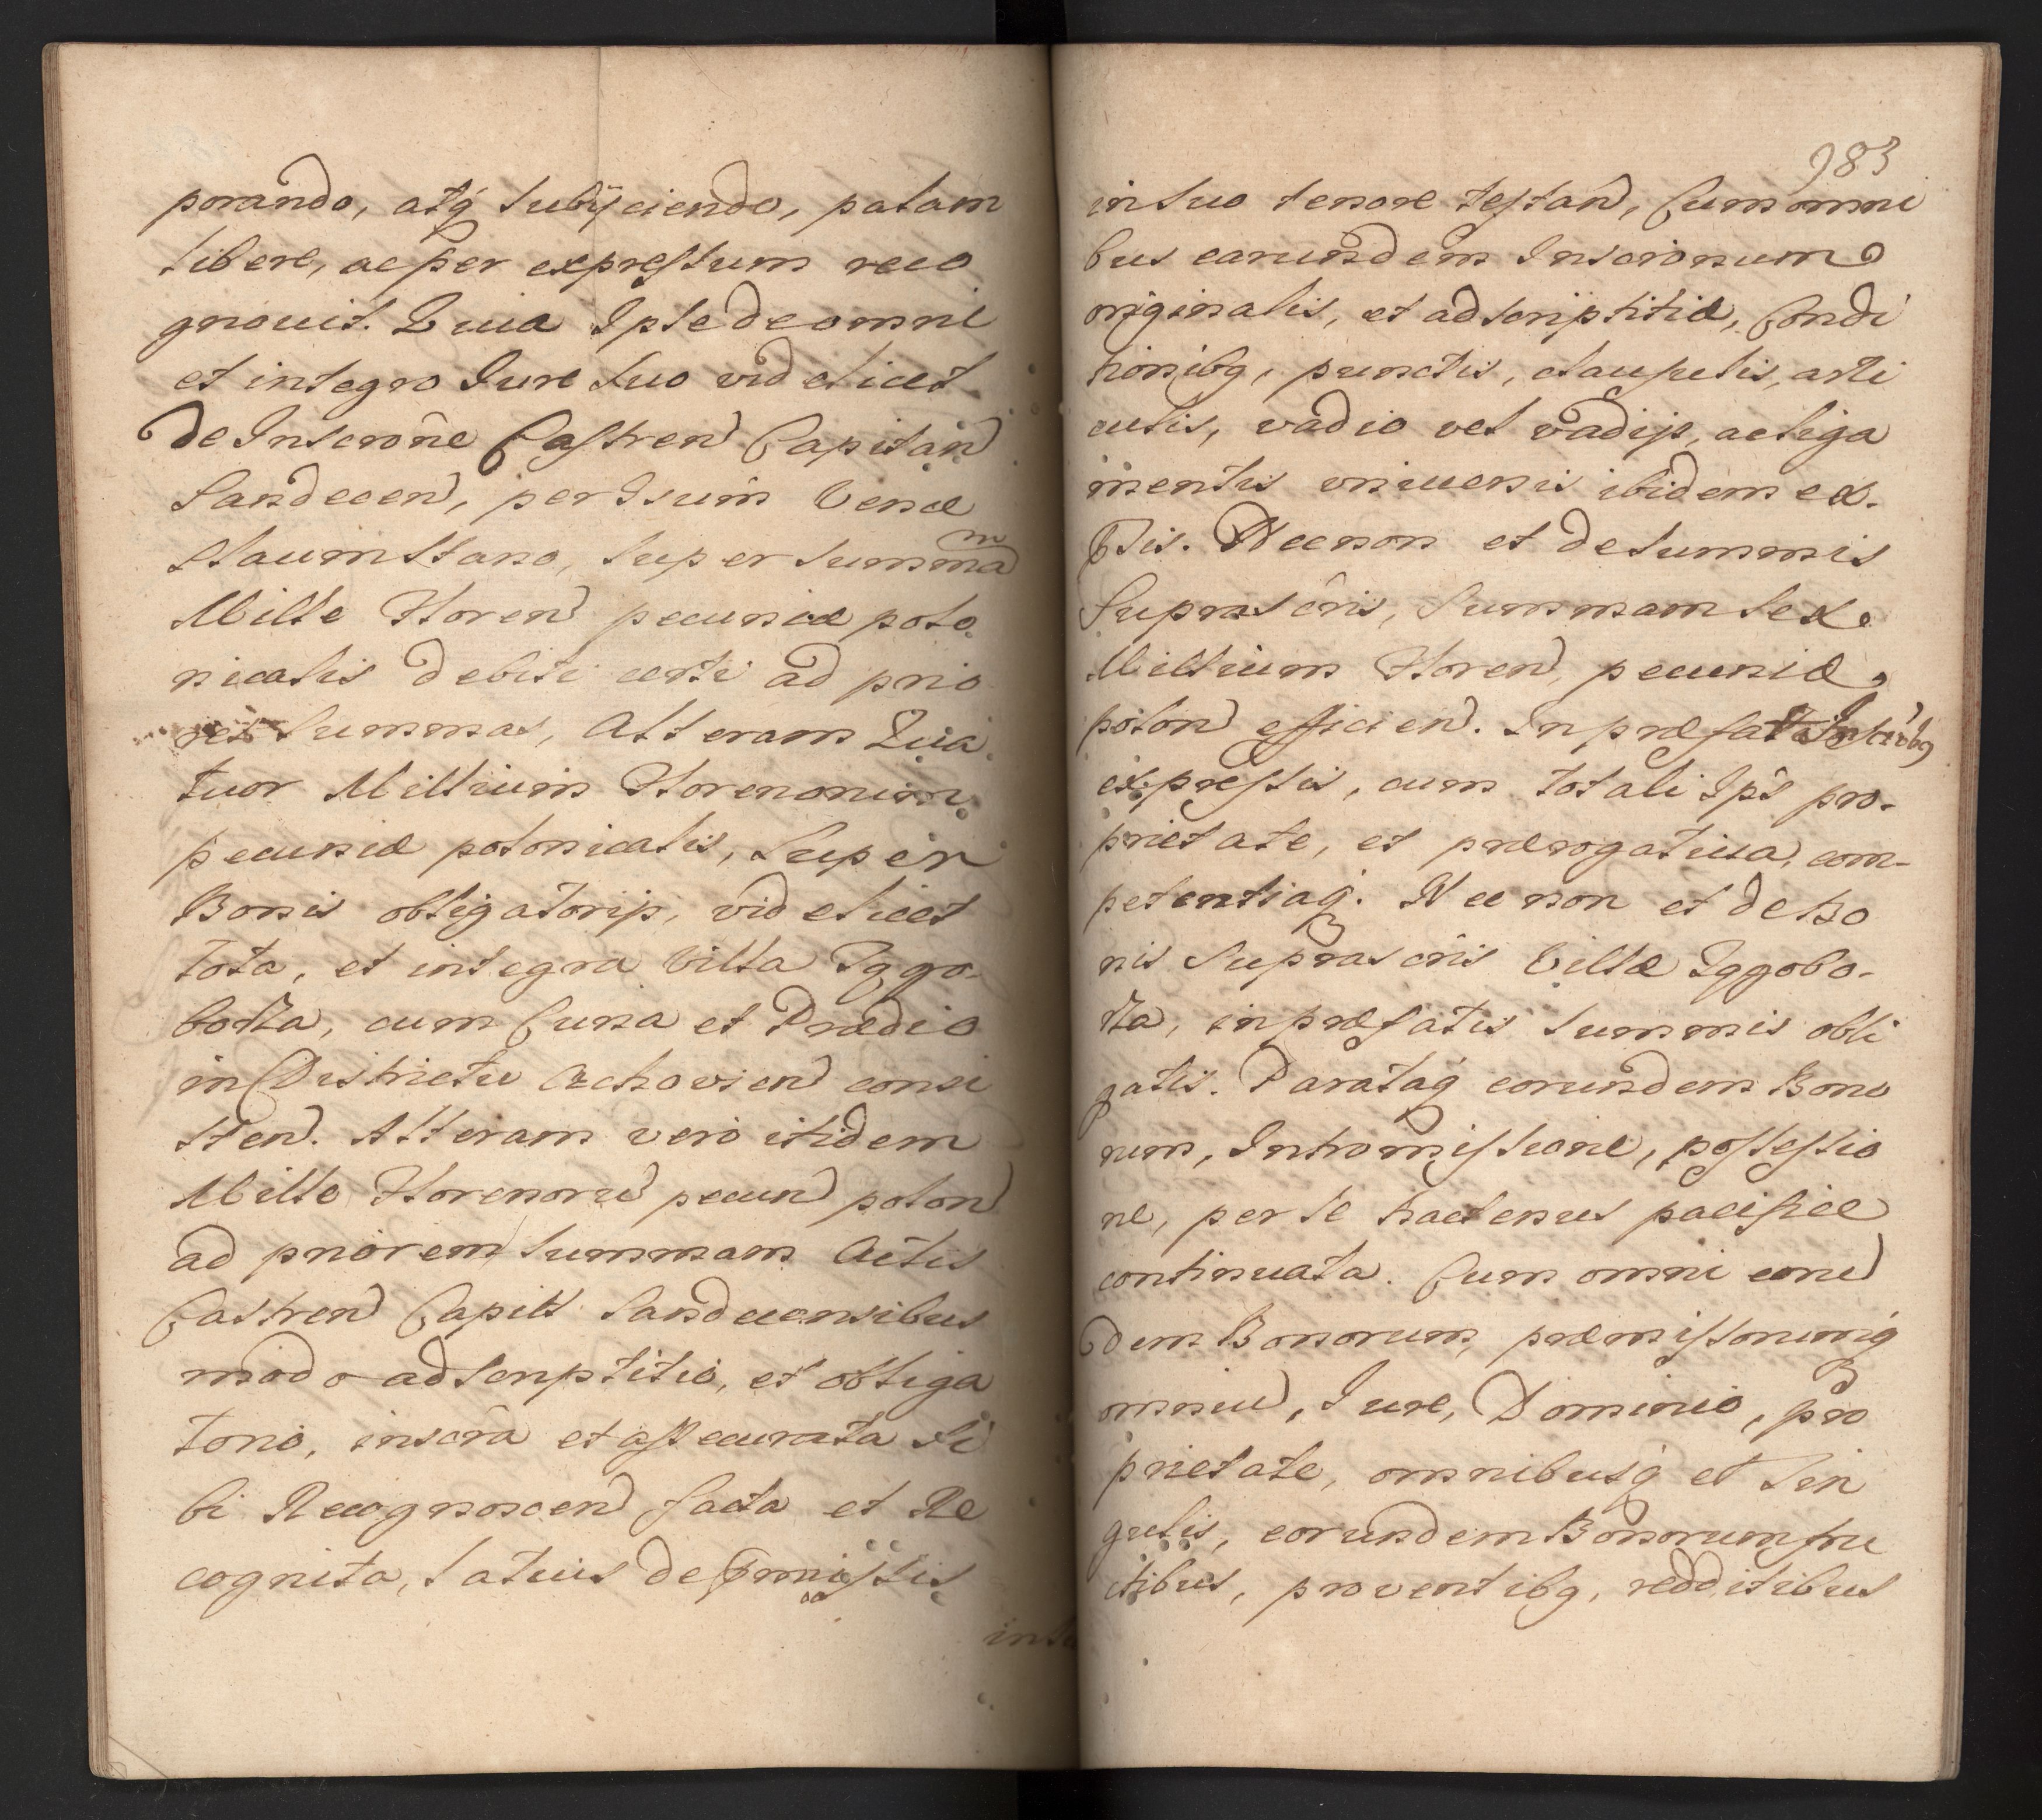 porando, atq́ subÿciendo, palam
libere, ac per expressum reco
gnouit. Quia Ipse de omni
et integro Iure suo videlicet
De Inscrõne Castren Capitan
Sandecen, per Gsum Vence
slaum Stano, super summam
Mille Floren pecuniæ polo
nicalis debiti certi ad prio
res summas, Alteram Qua
tuor Millium Florenorum
pecuniæ polonicalis, super
Bonis obligatorijs, videlicet
tota, et integra Villa
cum Curia et Prædio
in Districtu Czchovien consi
sten. Alteram vero itidem
Mille Florenorũ pecun polon
ad priorem summam Actis
Castren Capitt Sandecensibus
modo adscriptitio, et obliga
torio, inscrã et assecurata si
bi Recognoscen facta et Re
cognita, latius de præmissis
in su
983
in suo tenore testan, Cum omni
bus earundem Inscrionum
originalis, et adscriptitiæ, Condi
tionibq, punctis, clausulis, arti
culis, vadio vel vadijs, ac liga
mentis vniuersis ibidem ex-
ptis. Necnon et de summis
Suprascris, Summam sex
Millium Floren, pecuniæ
polon efficien. In præfat Inscrõbq
expressis, cum totali Ips pro-
prietate, et prærogatiua, com-
petentiaq́. Necnon et de Bo
nis Suprascris Villæ
in præfatis summis obli
gatis. Parataq́ eorundem Bono
rum, Intromissione, possessio
ne, per se hactenus pacifice
continuata. Cum omni eorun
dem Bonorum, præmissorumq́
omniu, Iure, Dominio, pro
prietate, omnibusq́ et sin
gulis, eorundem Bonorum fru
ctibus, proventibq, redditibus